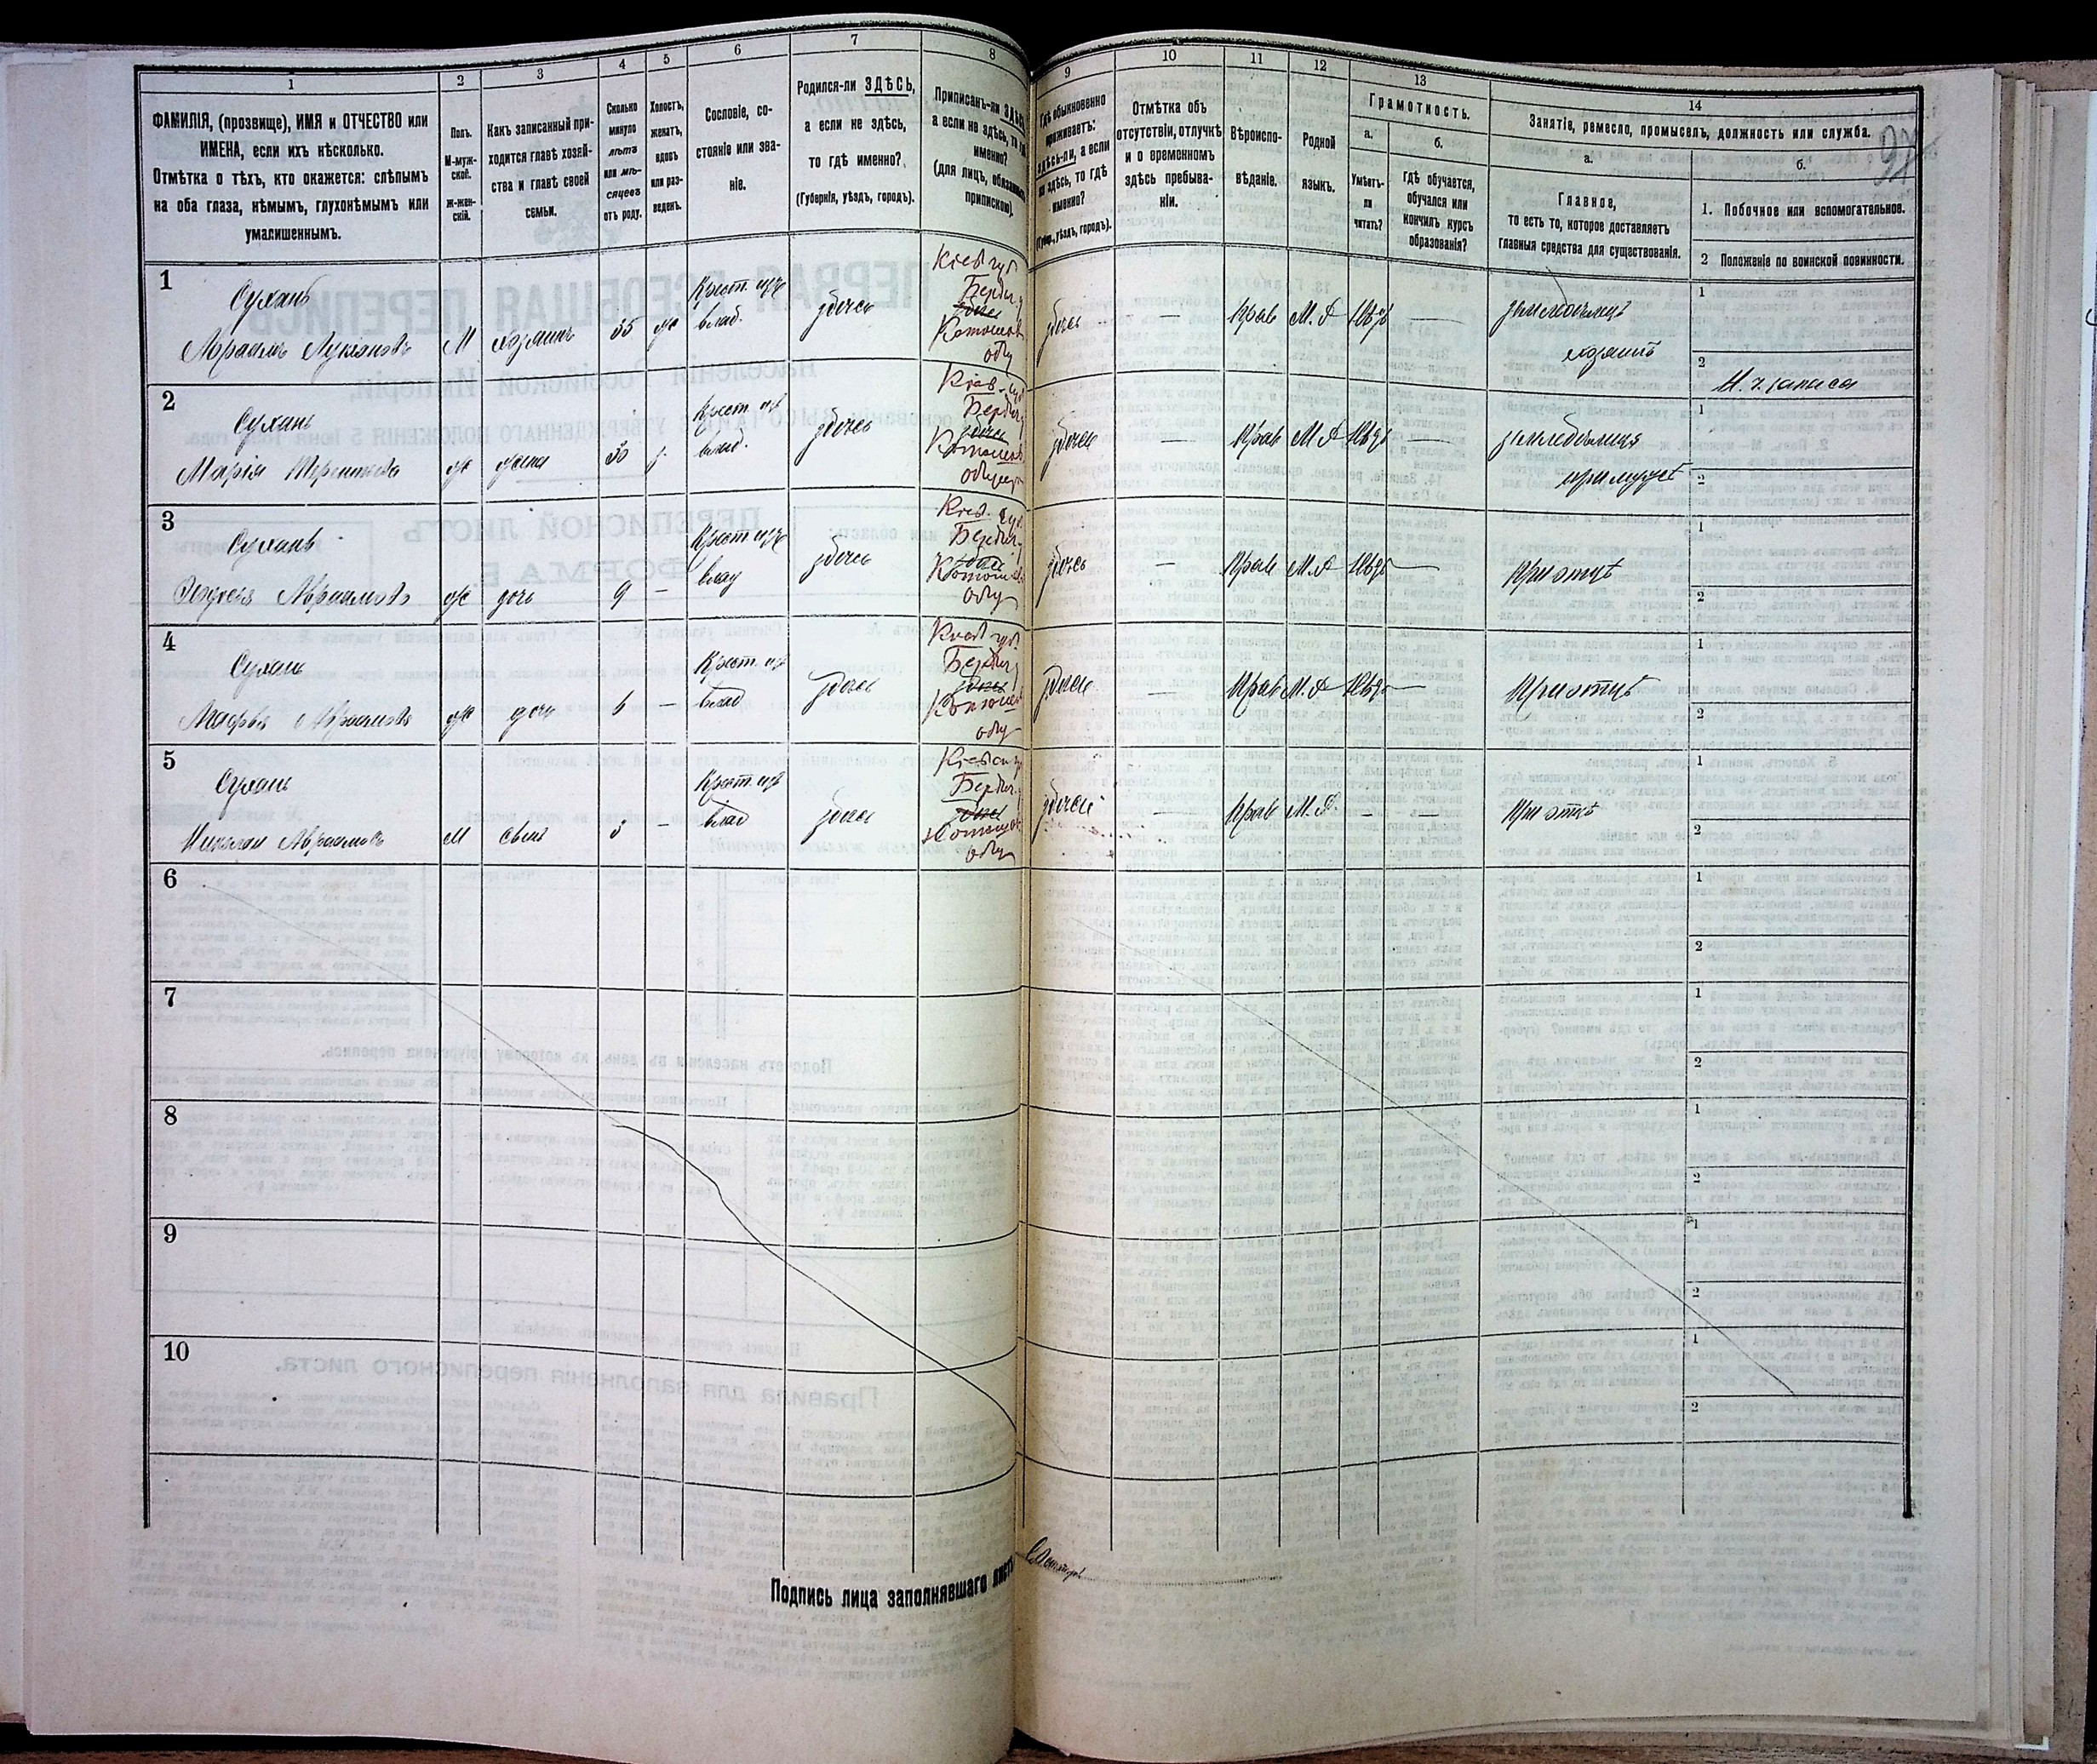 1
ФАМИЛІЯ, (прозвище), ИМЯ и ОТЧЕСТВО или
ИМЕНА, если ихъ нѣсколько.
Отмѣтка о тѣхъ, кто окажется: слѣпымъ
на оба глаза, нѣмымъ, глухонѣмымъ или
умалишеннымъ.
2
Полъ.
М-муж-
ской.
ж-жен-
скій.
3
Какъ записанный при-
ходится главѣ хозяй-
ства и главѣ своей
семьи.
4
Сколько
минуло
лѣтъ
или мѣ-
сяцевъ
отъ роду.
5
Холостъ,
женатъ,
вдовъ
или раз-
веденъ.
6
Сословіе, со-
стояніе или зва-
ніе.
7
Родился-ли ЗДѢСЬ,
а если не здѣсь,
то гдѣ именно?
(Губернія, уѣздъ, городъ).
8
Приписанъ-ли ЗДѢСЬ,
а если не здѣсь, то гдѣ
именно?
(для лицъ, обязанныхъ
припискою).
9
Гдѣ обыкновенно
проживаетъ:
здѣсь-ли, а если
не здѣсь, то гдѣ
именно?
(Губер., уѣздъ, городъ).
10
Отмѣтка объ
отсутствіи, отлучкѣ
и о временномъ
здѣсь пребыва-
ніи.
11
Вѣроиспо-
вѣданіе.
12
Родной
языкъ.
13
Грамотность.
а.
Умѣетъ-
ли
читать?
б.
гдѣ обучается,
обучался или
кончилъ курсъ
образованія?
14
Занятіе, ремесло, промыселъ, должность или служба.
а.
Главное,
то есть то, которое доставляетъ
главныя средства для существованія.
б.
1. Побочное или вспомогательное.
2 Положеніе по воинской повинности.
1
Сухань
Авраамъ
М хозяинъ 35 ж
Крест. изъ
влад.
здѣсь
Кіев губ
Бердич
здѣсь
здѣсь — Прав М. Р
земледѣлецъ
хозяинъ
1
2
запаса
2
Сухань
Марія
ж жена 30
Крест. изъ
влад.
здѣсь
Кіев. губ
Бердич
здѣсь
здѣсь — Прав М. Р —
при мужѣ
1
2
3
Сухань
Авраамова
ж дочь 9 —
Крест изъ
влад
здѣсь
Кіев. губ
Бердич.
здѣсь
здѣсь — Прав М. Р
При отцѣ
1
2
4
Сухань
Авраамова
ж дочь 6 —
Крест. изъ
влад
здѣсь
Кіев губ
Бердич
здѣсь
здѣсь — Прав М. Р
При отцѣ
1
2
5
Сухань
Николай Авраамовъ
М сынъ —
Крест. изъ
влад
здѣсь
Бердич.
здѣсь
здѣсь — Прав М. Р. — —
При отцѣ
1
2
6
1
2
7
1
2
8
1
2
9
1
2
10
1
2
Подпись лица заполнявшаго листъ